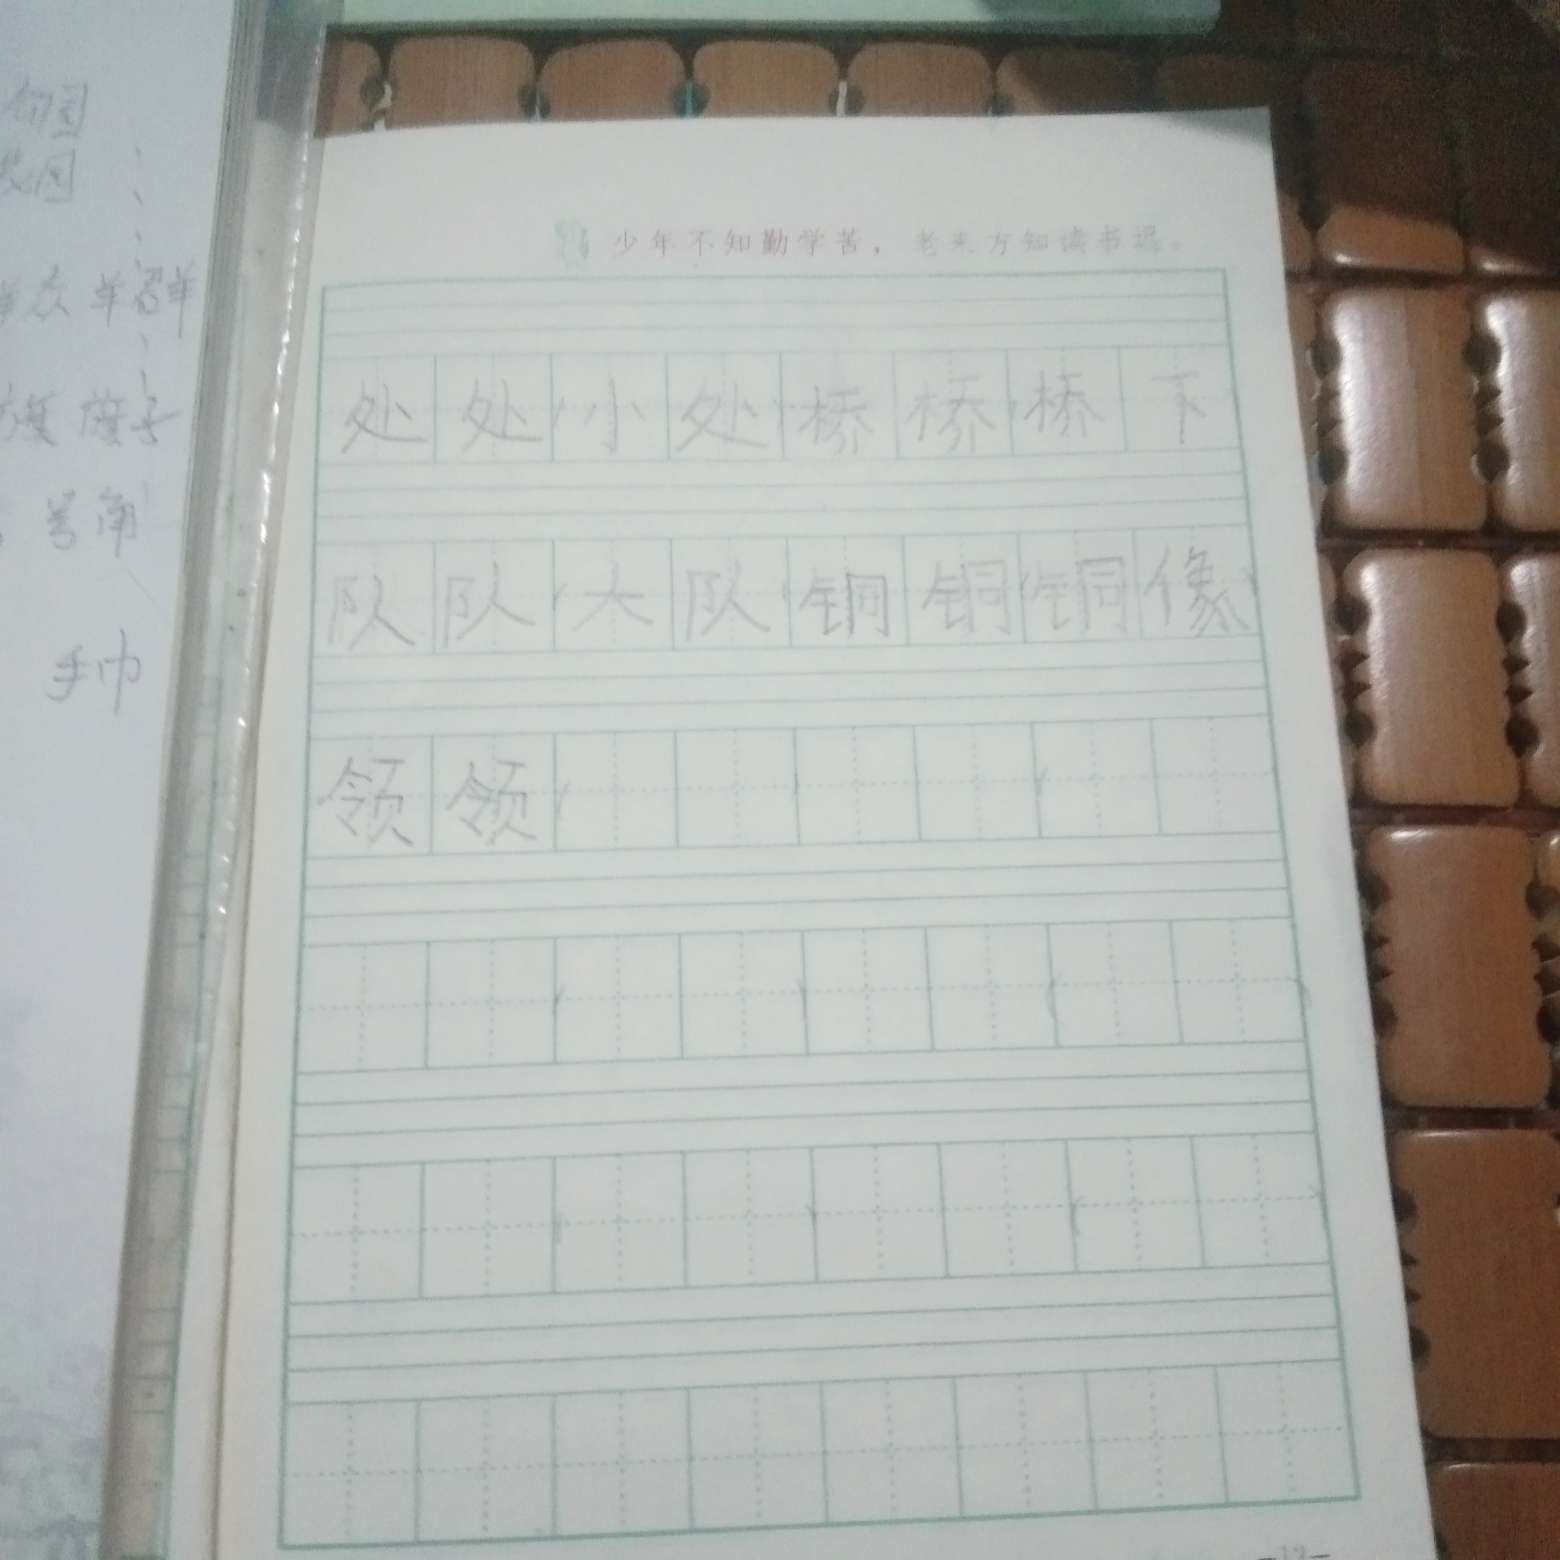 少年不知勤学苦，老来方知读书迟。
处处小处桥桥桥下
队队大队铜铜铜像
领领
园
园
众羊群
旗旗子
号角
手巾